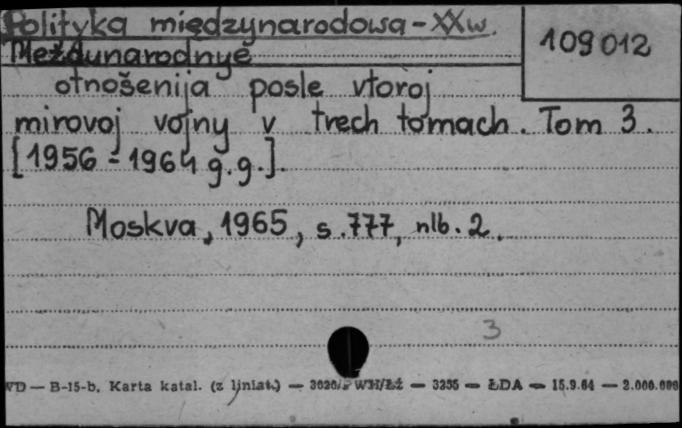 Polityka międzynarodowa - XX w.
109012
Meždunarodnye
otnošenija posle vtoroj
mirovoj vojny v trech tomach. Tom 3.
[1956 - 1964 g.g.].
Moskva, 1965, s. 777, nlb. 2.
3
B-15-b. Karta katal. (z liniat.) — 3020/PWH/Łż — 3235 — ŁDA — 15.9.64 — 2.000.000